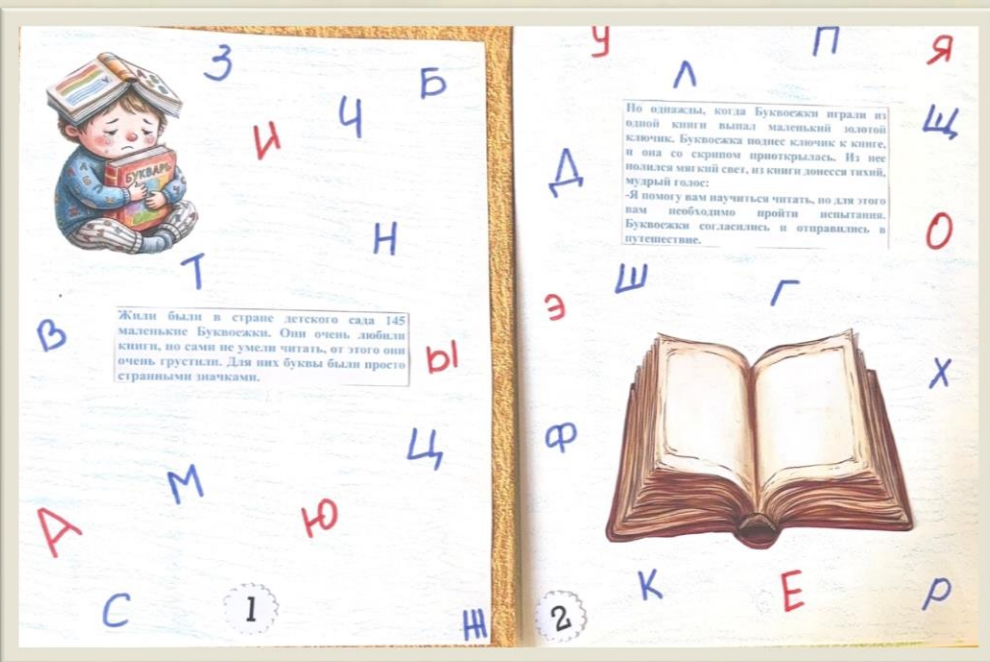 З
Б
Ч
И
БУКВАРЬ
Н
Т
В
Жили были в стране детского сада 145
маленькие Буквоежки. Они очень любили
книги, но сами не умели читать, от этого они
очень грустили. Для них буквы были просто
странными значками.
Ы
Ц
М
А
Ю
С
1
Ж
У
П
Я
Л
Но однажды, когда Буквоежки играли из
одной книги выпал маленький золотой
ключик. Буквоежка поднес ключик к книге,
и она со скрипом приоткрылась. Из нее
полился мягкий свет, из книги донесся тихий,
мудрый голос:
-Я помогу вам научиться читать, но для этого
вам необходимо пройти испытания.
Буквоежки согласились и отправились в
путешествие.
Щ
Д
О
Ш
Г
Э
Х
Ф
К
Е
Р
2